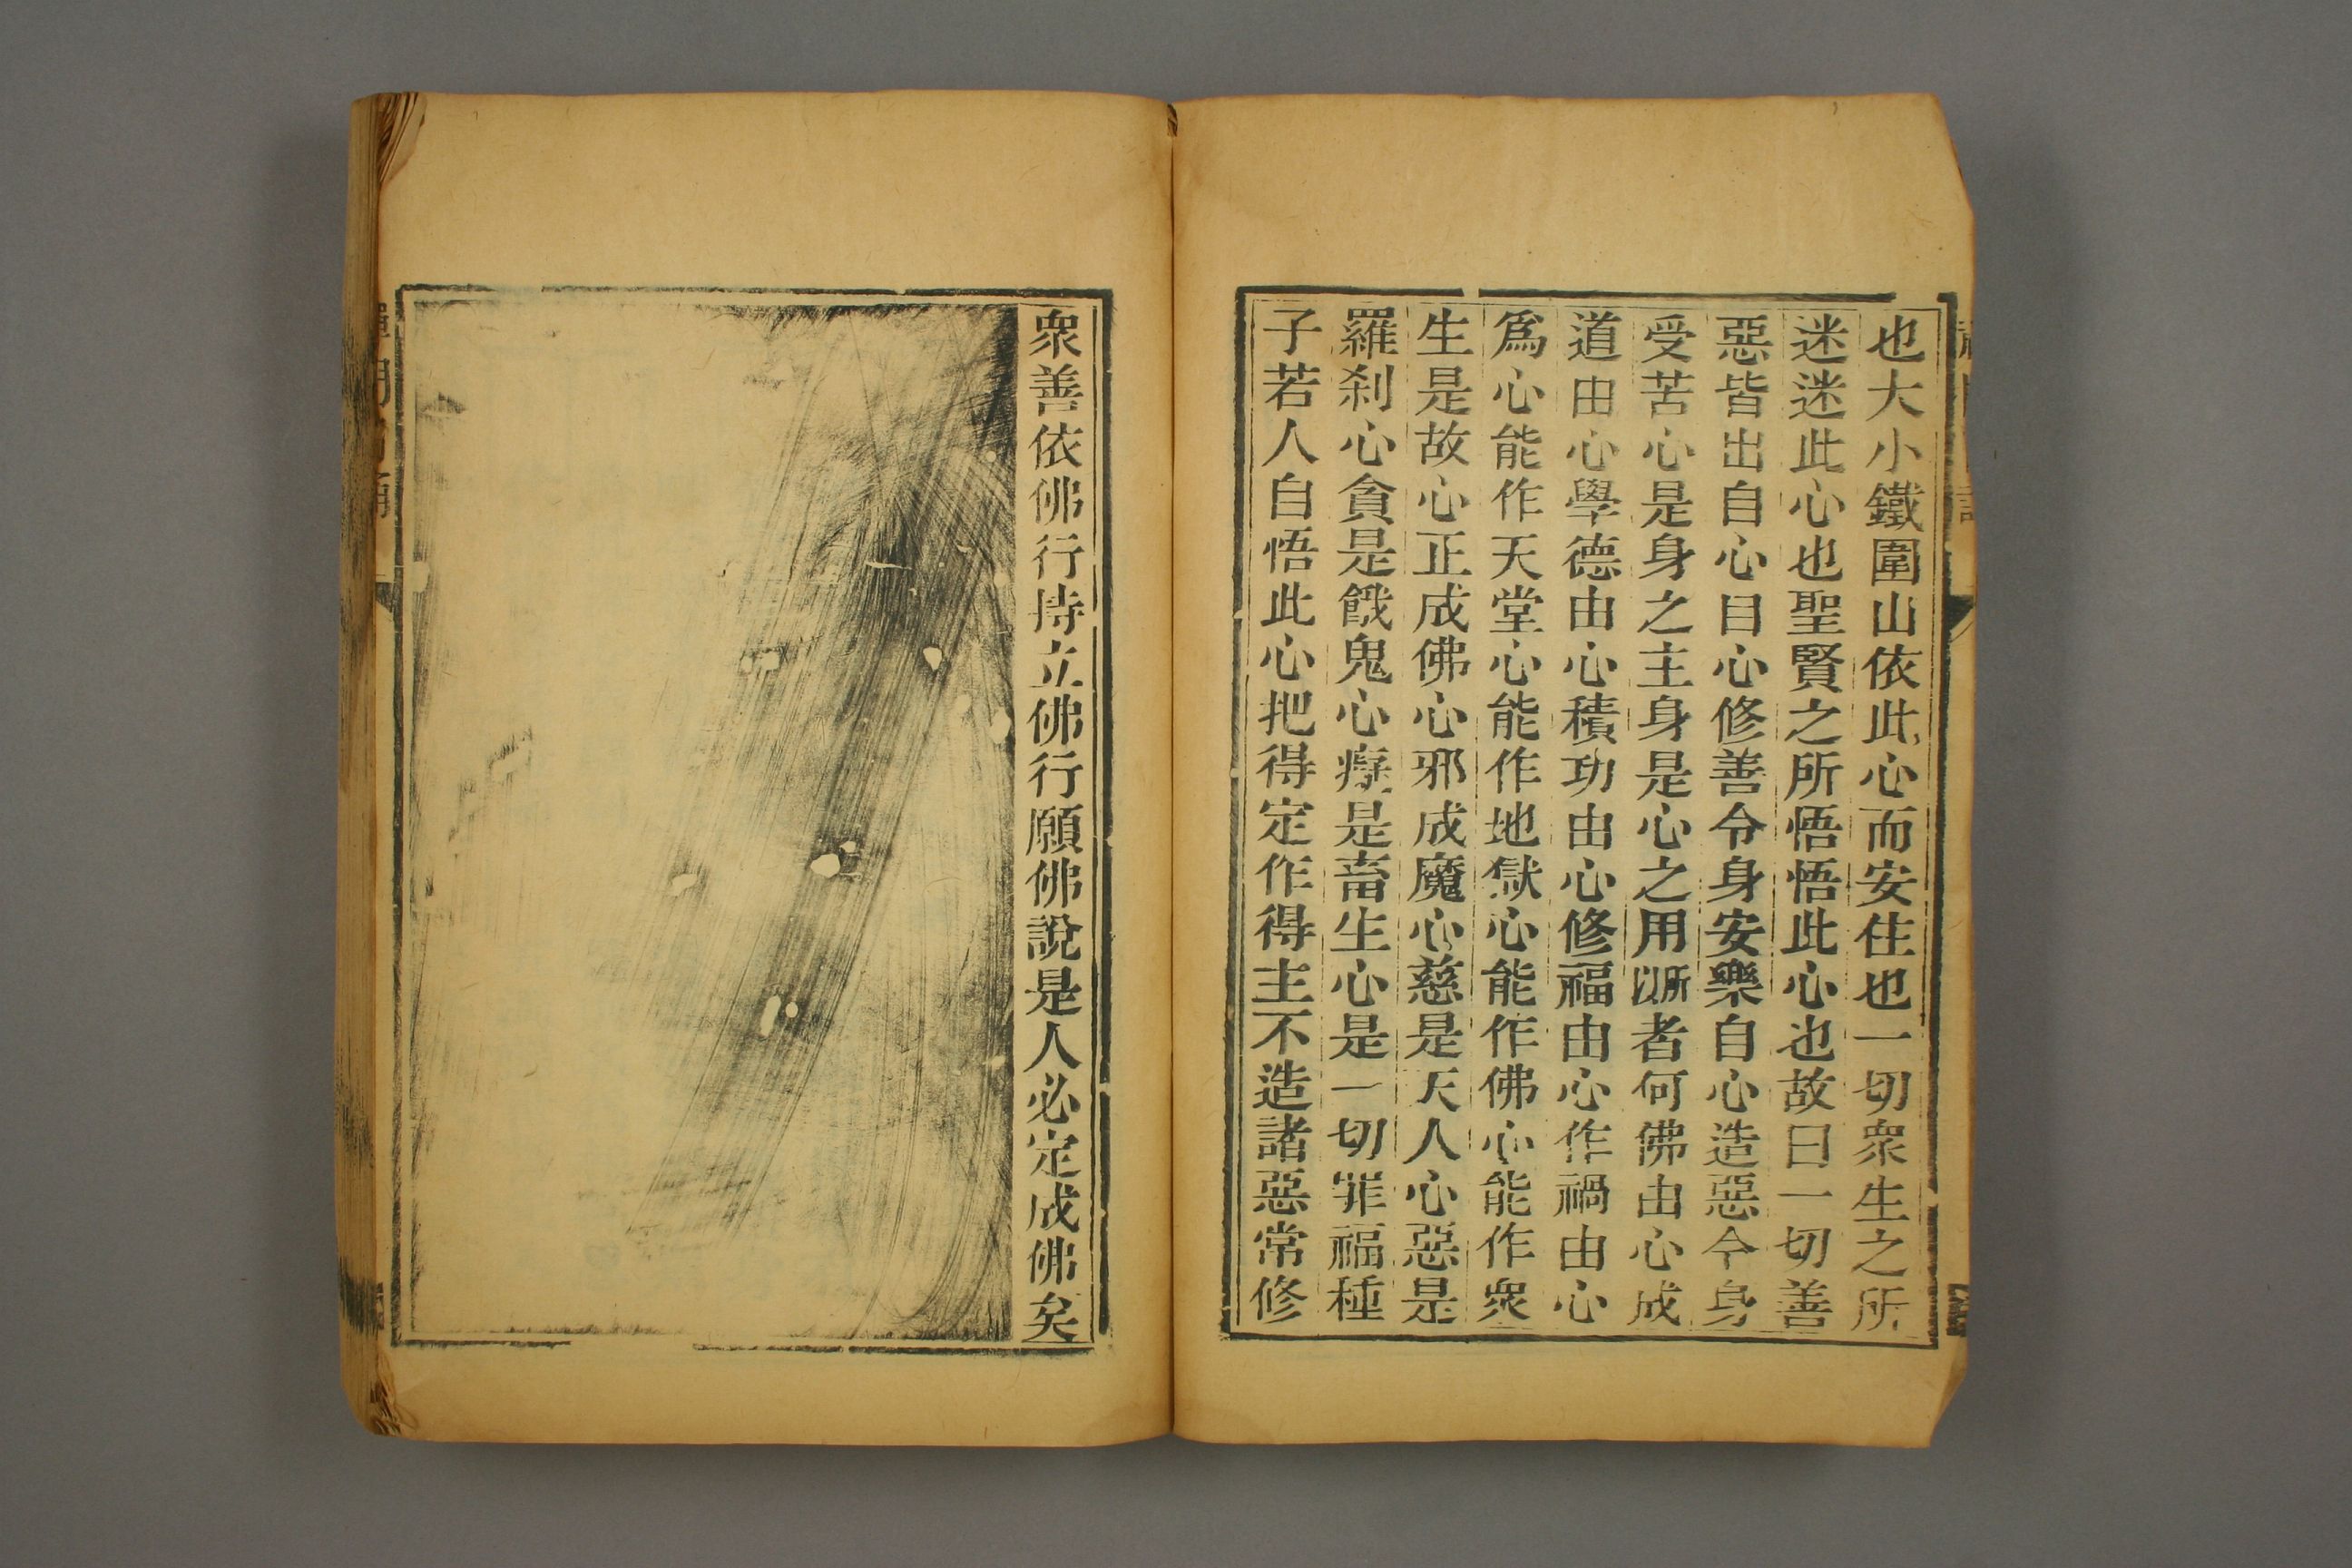 也大小鐵圍山依此心而安住也一切衆生之所
迷迷此心也聖賢之所悟悟此心也故曰一切善
惡皆出自心目心修善令身安樂自心造惡令身
受苦心是身之主身是心之用所以者何佛由心成
道由心學德由心積功由心修福由心作禍由心
爲心能作天堂心能作地獄心能作佛心能作衆
生是故心正成佛心邪成魔心慈是天人心惡是
羅刹心貪是餓鬼心癡是畜生心是一切罪福種
子若人自悟此心把得定作得主不造諸惡常修
衆善依佛行持立佛行願佛說是人必定成佛矣